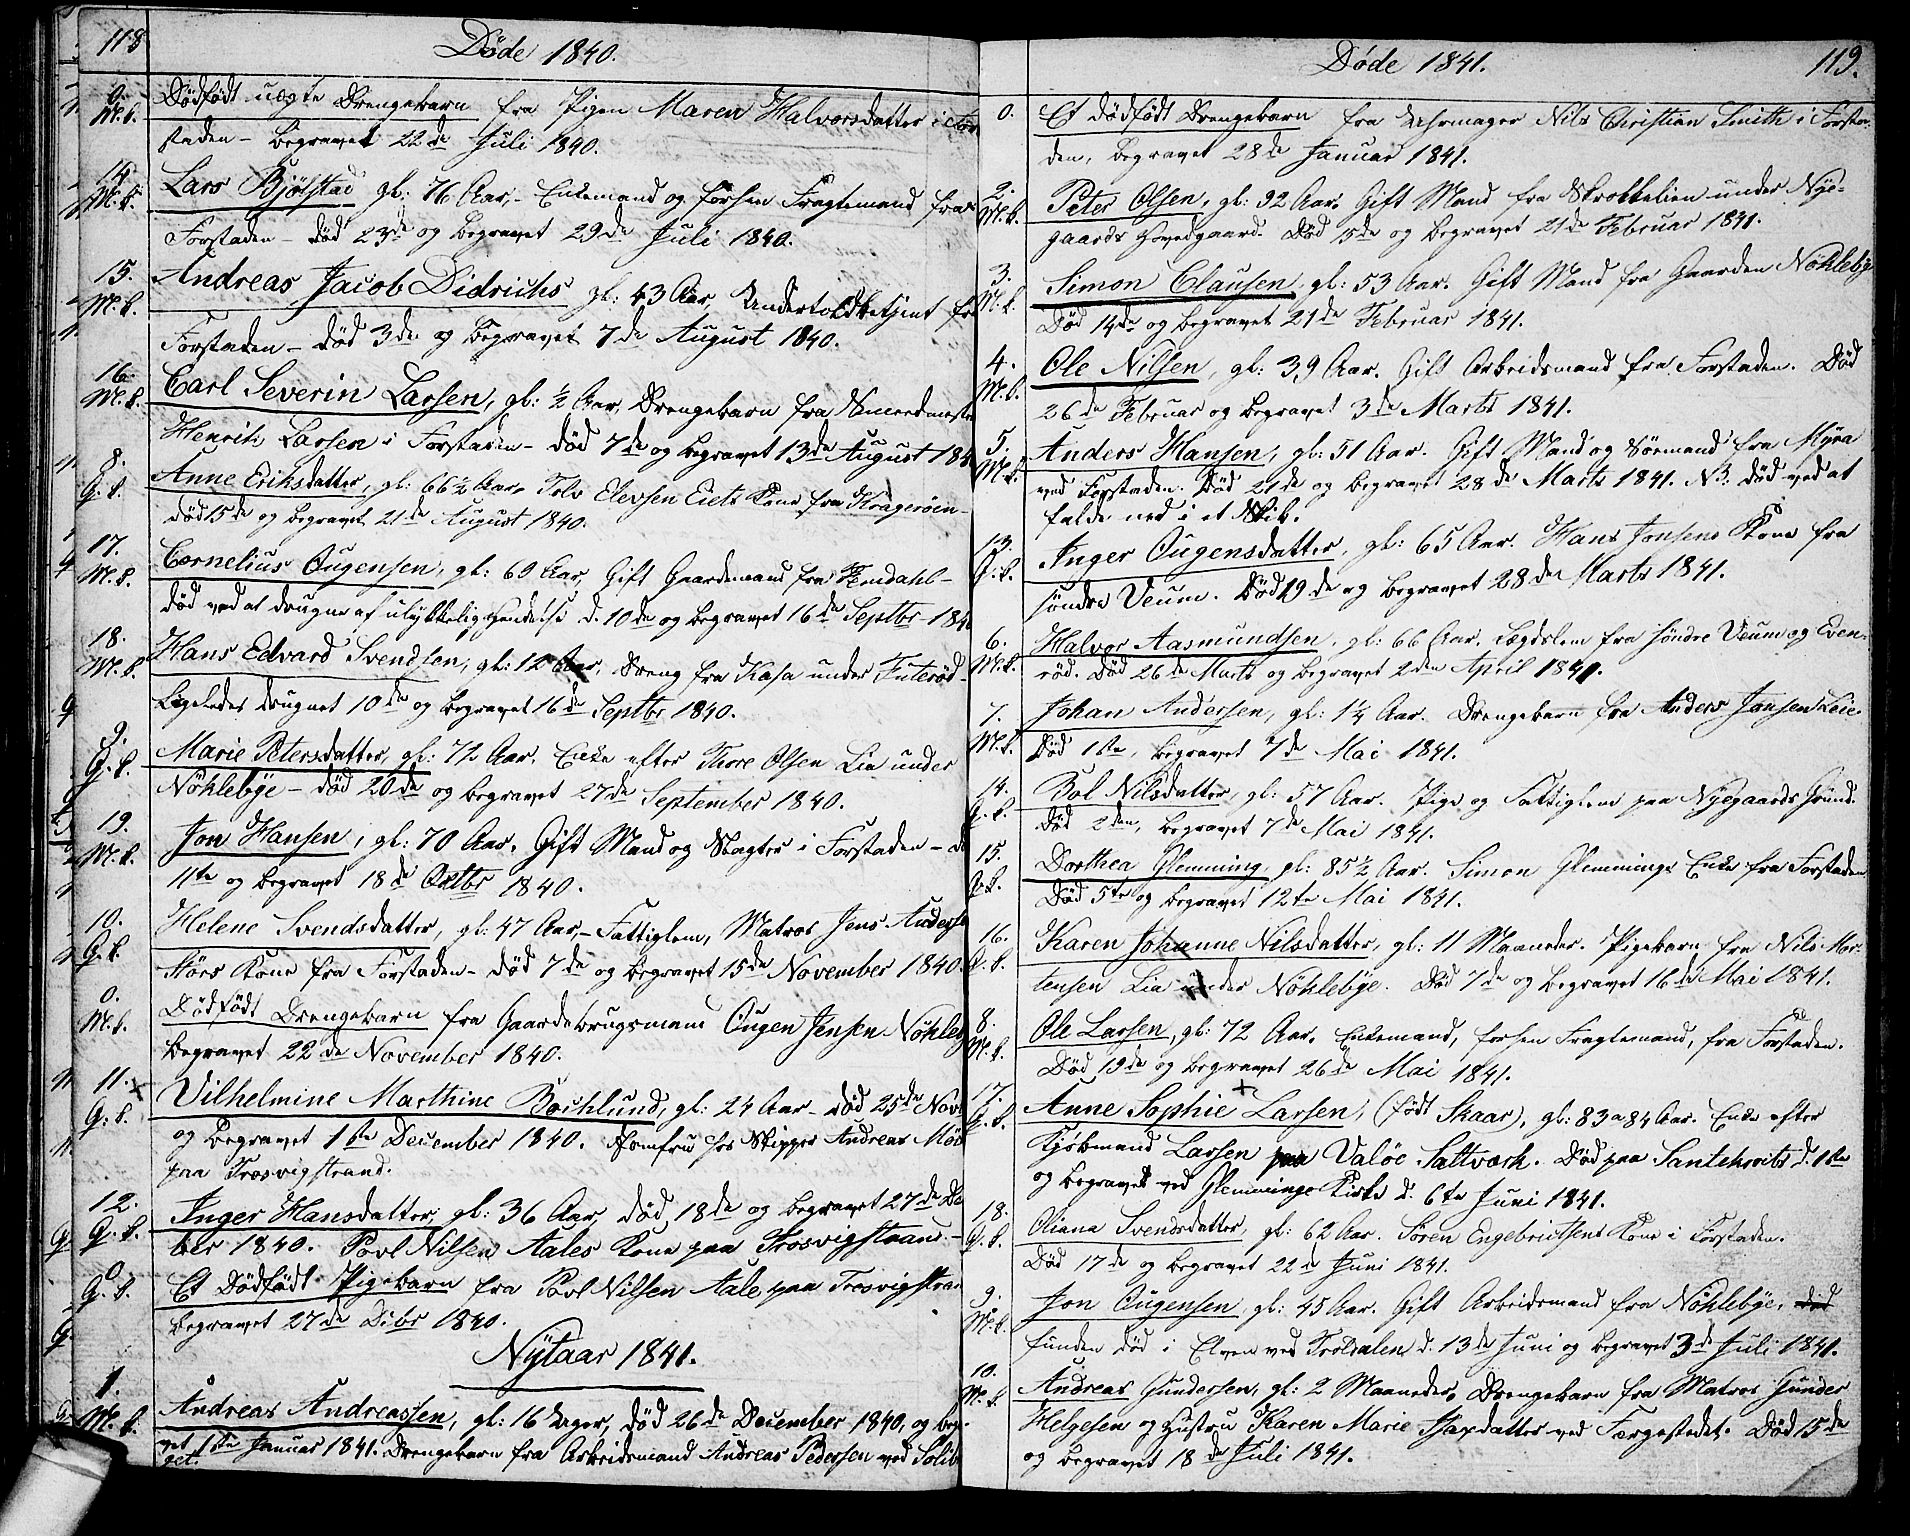 118
Døde 1840.
0. Dødfødt uægte Drengebarn fra Pigen Maren Halvorsdatter i For
M.k. staden – begravet 22de Juli 1840.
14. Lars Bjølstad gl: 76 Aar, – Enkemand og forhen Fragtemand fra
M.k. Forstaden – død 23de og begravet 29de Juli 1840.
15. Andreas Jacob Didrichs gl: 43 Aar Undertoldbetjent fr
M.k. Forstaden – død 3de og begravet 7de August 1840.
16. Carl Severin Larsen, gl: ½ Aar, Drengebarn fra
M.k. Henrik Larsen i Forstaden – død 7de og begravet 13de August 184
8. Anne Eriksdatter, gl: 66½ Aar, Tolv Elevsen Eiets Kone fra Kragerøen –
Q.k. død 15de og begravet 21de August 1840.
17. Cornelius Ougensen, gl: 69 Aar, Gift Gaardmand fra Femdahl –
M.k. død ved at drugne af ulykkelig Hændelse d. 10de og begravet 16de Septbr 184
18. Hans Edvard Svendsen, gl: 12 Aar, Dreng fra Kasa under Futerød –
M.k. Ligeledes drugnet 10de og begravet 16de Septbr 1840.
9. Marie Petersdatter, gl: 72 Aar. Enke efter Thore Olsen Lia under
Q.k. Nøklebye – død 20de og begravet 27de September 1840.
19. Jon Hansen, gl: 70 Aar, Gift Mand og Slagter i Forstaden – dø
M.k. 11te og begravet 18de Octbr 1840.
10. Helene Svendsdatter, gl: 47 Aar, – Fattiglem, Matros Jens Anders
Q.k. Kone fra Forstaden – død 7de og begravet 15de November 1840.
0. Dødfødt Drengebarn fra Gaardebrugsmand Ougen Jensen Nøkleb
M.k. begravet 22de November 1840.
11. Vilhelmine Marthine Bochlund, gl: 24 Aar – død 25de Nov
Q.k. og begravet 1ste December 1840. Jomfru hos Skipper Andreas
paa Trosvigstrand.
12. Inger Hansdatter, gl: 36 Aar, død 18de og begravet 27de De
Q.k. ber 1840. Povl Nilsen Aales Kone paa Trosvigstrand –
0. Et Dødfødt Pigebarn fra Povl Nilsen Aale paa Trosvigstran
Q.k. begravet 27de Decbr 1840.
Nytaar 1841.
1. Andreas Andreassen, gl: 16 Uger, død 26de December 1840, og beg
M.k. vet 1ste Januar 1841. Drengebarn fra Arbeidsmand Andreas Pedersen ved
Døde 1841.
119.
0. Et dødfødt Drengebarn fra Uhrmager Nils Christian Smith i Forsta
den, begravet 28de Januar 1841.
2. Peter Olsen, gl: 92 Aar. Gift Mand fra Skrokkelien under Nye-
M.k. gaards Hovedgaard. Død 15de og begravet 21de Februar 1841.
3. Simon Clausen, gl: 53 Aar. Gift Mand fra Gaarden Nøkleby
M.k. Død 14de og begravet 21de Februar 1841.
4. Ole Nilsen, gl: 39 Aar. Gift Arbeidsmand fra Forstaden. Død
M.k. 26de Februar og begravet 3de Marts 1841.
5. Anders Hansen, gl: 51 Aar. Gift Mand og Sømand fra Myra
M.k. ved Forstaden. Død 21de og begravet 28de Marts 1841. NB. død ved at
falde ned i et Skib.
13. Inger Ougensdatter, gl: 65 Aar. Hans Jonsens Kone fra
Q.k. søndre Veum. Død 19de og begravet 28de Marts 1841.
6. Halvor Aasmundsen, gl: 66 Aar. Lægdslem fra søndre Veum og Even-
M.k. rød. Død 26de Marts og begravet 2den April 1841.
7. Johan Andersen, gl: 1¼ Aar. Drengebarn fra Anders Jansen Leie.
M.k. Død 1ste, begravet 7de Mai 1841.
14. Bol Nilsdatter, gl: 57 Aar. Pige og Fattiglem paa Nyegaards Grund.
Q.k. Død 2den, begravet 7de Mai 1841.
15. Dorthea Glemming gl: 85½ Aar. Simon Glemmings Enke fra Forstaden
Q.k. Død 5te og begravet 12te Mai 1841.
16. Karen Johanne Nilsdatter, gl: 11 Maaneder. Pigebarn fra Nils Mor-
Q.k. tensen Lia under Nøklebye. Død 7de og begravet 16de Mai 1841.
8. Ole Larsen, gl: 72 Aar. Enkemand, forhen Fragtemand, fra Forstaden.
M.k. Død 19de og begravet 26de Mai 1841.
17. Anne Sophie Larsen, (født Skaar), gl: 83 a 84 Aar. Enke efter
Q.k. Kjøbmand Larsen paa Valøe Saltværk. Død paa d. 1ste
og begravet ved Glemminge Kirke d. 6te Juni 1841.
18. Oliana Svendsdatter, gl: 62 Aar. Søren Engebrigtsens Kone i Forstaden.
Q.k. Død 17de og begravet 22de Juni 1841.
9. Jon Ougensen, gl: 45 Aar. Gift Arbeidsmand fra Nøklebye, død
M.k. funden død i Elven ved Troldalen d. 13de Juni og begravet 3de Juli 1841.
10. Andreas Gundersen, gl: 2 Maaneder. Drengebarn fra Matros Gunder
M.k. Helgesen og Hustru Karen Marie Isaxdatter ved Færgestedet. Død 15de
og begravet 18de Juli 1841.